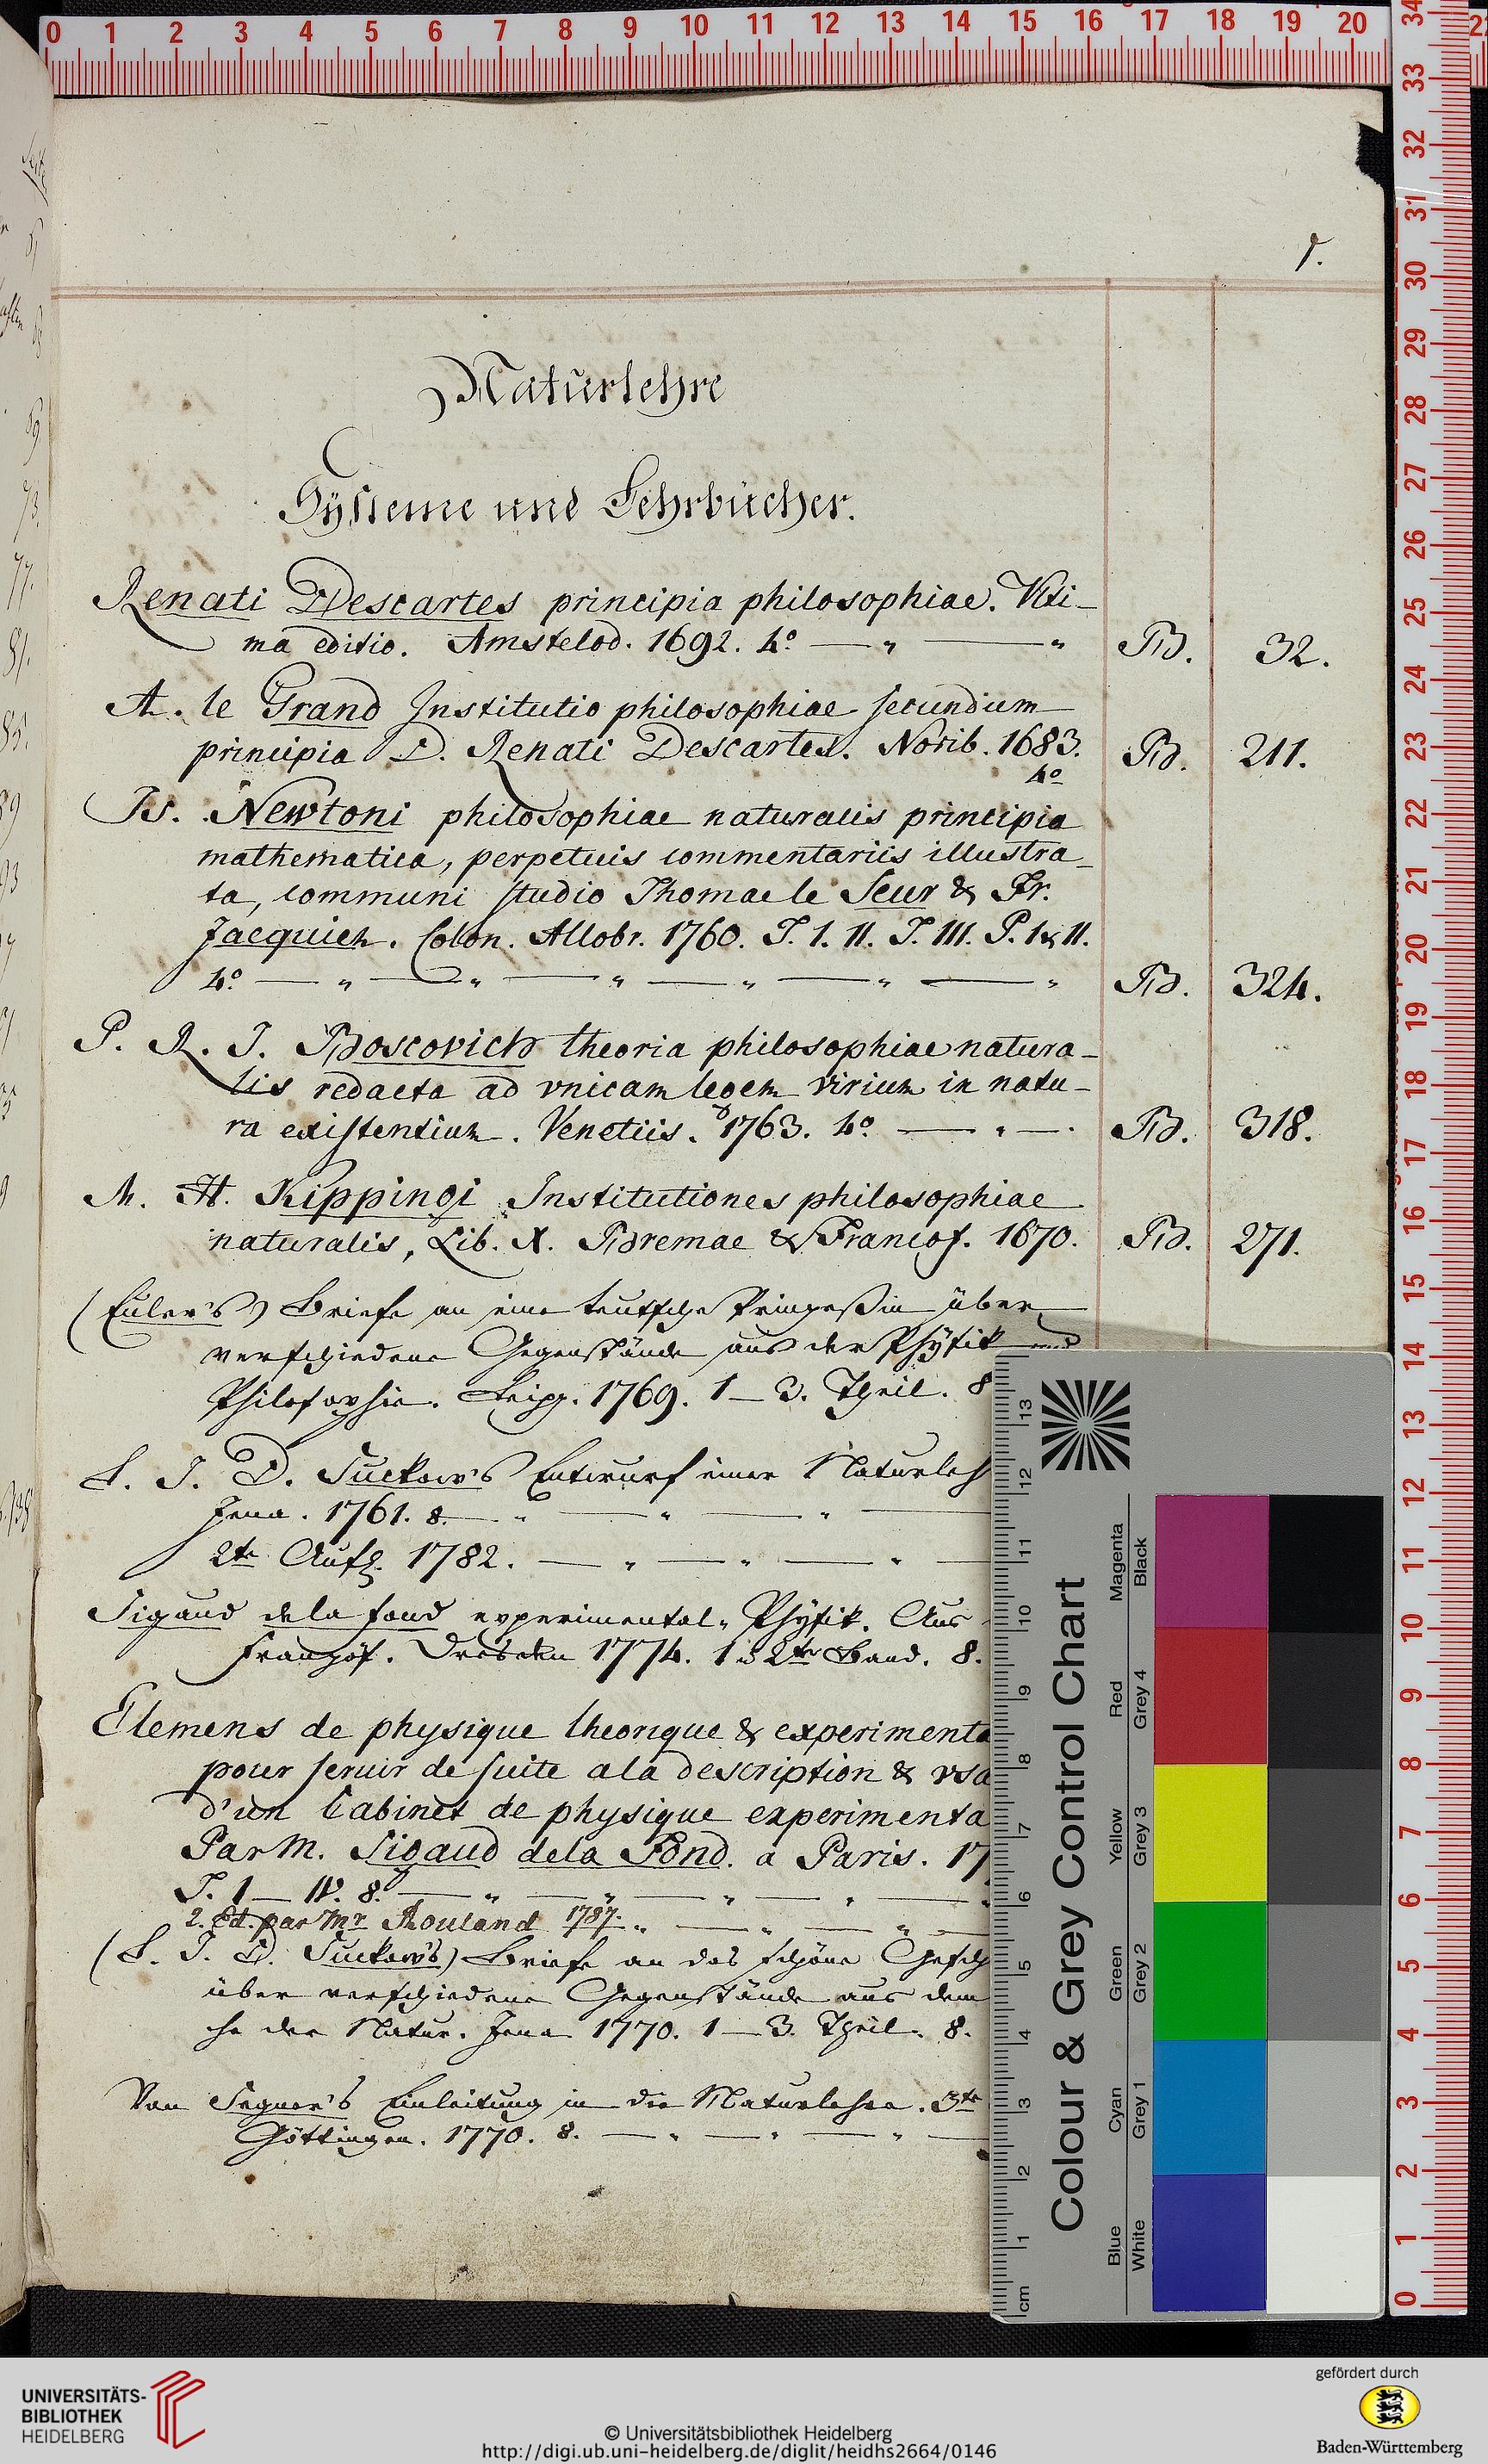 1.
Naturlehre
Systeme und Lehrbücher.
Renati Descartes principia philosophiae. Vlti-
ma editio. Amstelod. 1692. 4° — „ — „ B. 32.
A. le Grand Institutio philosophiae secundum
principia D. Renati Descartes. Norib. 1683. B. 211.
4°
Is. Newtoni philosophiae naturalis principia
mathematica, perpetuis commentariis illustra-
ta, communi studio Thomae le Seur & Fr.
Jacquier. Colon. Allobr. 1760. T. I. II. T. III. P. I & II.
4° — „ — „ — „ — „ — „ — „ B. 324.
P. R. J. Boscovich theoria philosophiae natura-
lis redacta ad vnicam legem virium in natu-
ra existentium. Venetiis. 1763. 4° — „ — . B. 318.
M. H. Kippingi Institutiones philosophiae
naturalis, Lib. X. Bremae & Francof. 1670. B. 271.
(Euler's) Briefe an eine teutsche Prinzeßin über
verschiedene Gegenstände aus der Physik und
Philosophie. Leipz. 1769. 1 — 3. Theil. 8
L. J. D. Suckow's Entwurf einer Naturleh
Jena. 1761. 8. — „ — „ — „ —
2te Aufl. 1782. — „ — „ — „ —
Sigaud de la fond experimental-Physik. Aus
Französ. Dresden 1774. 1 & 2ter Band. 8.
Elemens de physique theorique & experimenta
pour seruir de suite a la description & vsa
d'un Cabinet de physique experimenta
Par M. Sigaud dela Fond. a Paris. 17
T. I — IV. 8° — „ — „ — „ — „ — „
2. Ed. par Mr Rouland 1787. „ — „ — „ —
(L. J. D. Suckow's) Briefe an das schöne Geschl
über verschiedene Gegenstände aus dem
che der Natur. Jena 1770. 1 — 3. Theil. 8.
Von Segner's Einleitung in die Naturlehre. 3te
Göttingen. 1770. 8. — „ — „ — „ —
Colour & Grey Control Chart
Magenta Black
Red Grey 4
Yellow Grey 3
Green Grey 2
Cyan Grey 1
Blue White
cm 1 2 3 4 5 6 7 8 9 10 11 12 13
0 1 2 3 4 5 6 7 8 9 10 11 12 13 14 15 16 17 18 19 20
34 33 32 31 30 29 28 27 26 25 24 23 22 21 20 19 18 17 16 15 14 13 12 11 10 9 8 7 6 5 4 3 2 1 0
UNIVERSITÄTS-
BIBLIOTHEK
HEIDELBERG
© Universitätsbibliothek Heidelberg
http://digi.ub.uni-heidelberg.de/diglit/heidhs2664/0146
gefördert durch
Baden-Württemberg